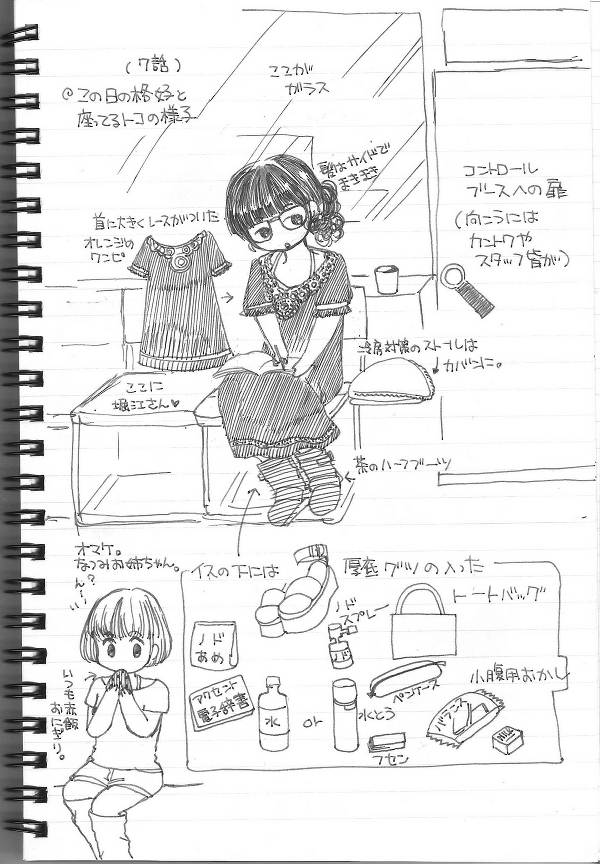 (7話)
@この日の格好と
座ってるトコの様子
ここが
ガラス
髪はサイドで
まきまき
コントロール
ブースへの扉
(向こうには
カントクや
スタッフ皆が)
首に大きくレースがついた
オレンジの
ワンピ
冷房対策のストールは
カバンに。
ここに
堀江さん♥
茶のハーフブーツ
オマケ。
なつみお姉ちゃん。
ん?
ん〜い
いつも赤飯
おにぎり。
イスの下には
厚底グツの入った
トートバッグ
ノド
スプレー
ノド
あめ
ノド
アクセント
電子辞書
水
or
水とう
ペンケース
フセン
小腹用おかし
バランス
Milk